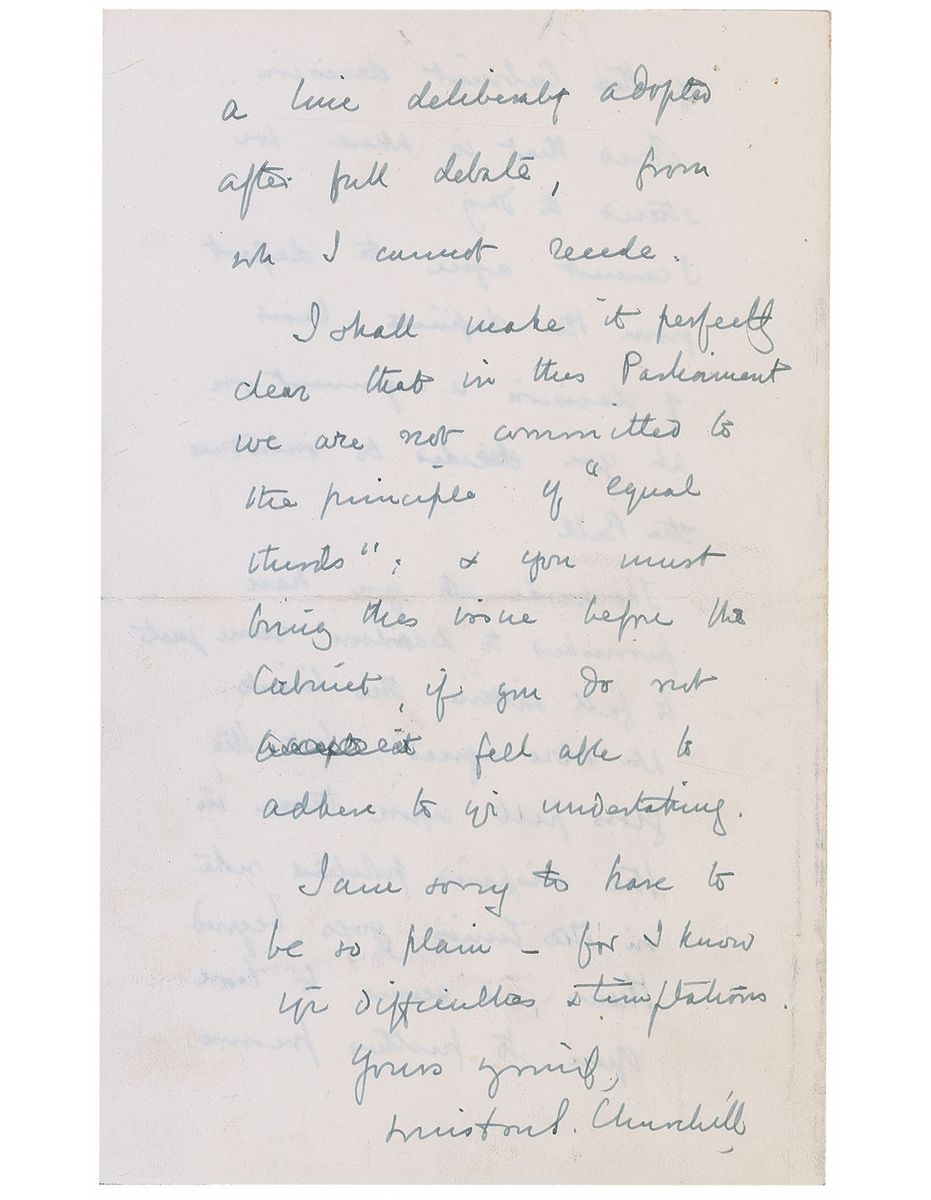 a line deliberately adopted
after full debate, from
wh I cannot recede.
I shall make it perfectly
clear that in this Parliament
we are not committed to
the principle of "equal
thirds"; & you must
bring this issue before the
Cabinet, if you do not
accept it feel able to
adhere to yr undertaking.
I am sorry to have to
be so plain – for I know
yr difficulties, & temptations.
Yours
Winston S. Churchill